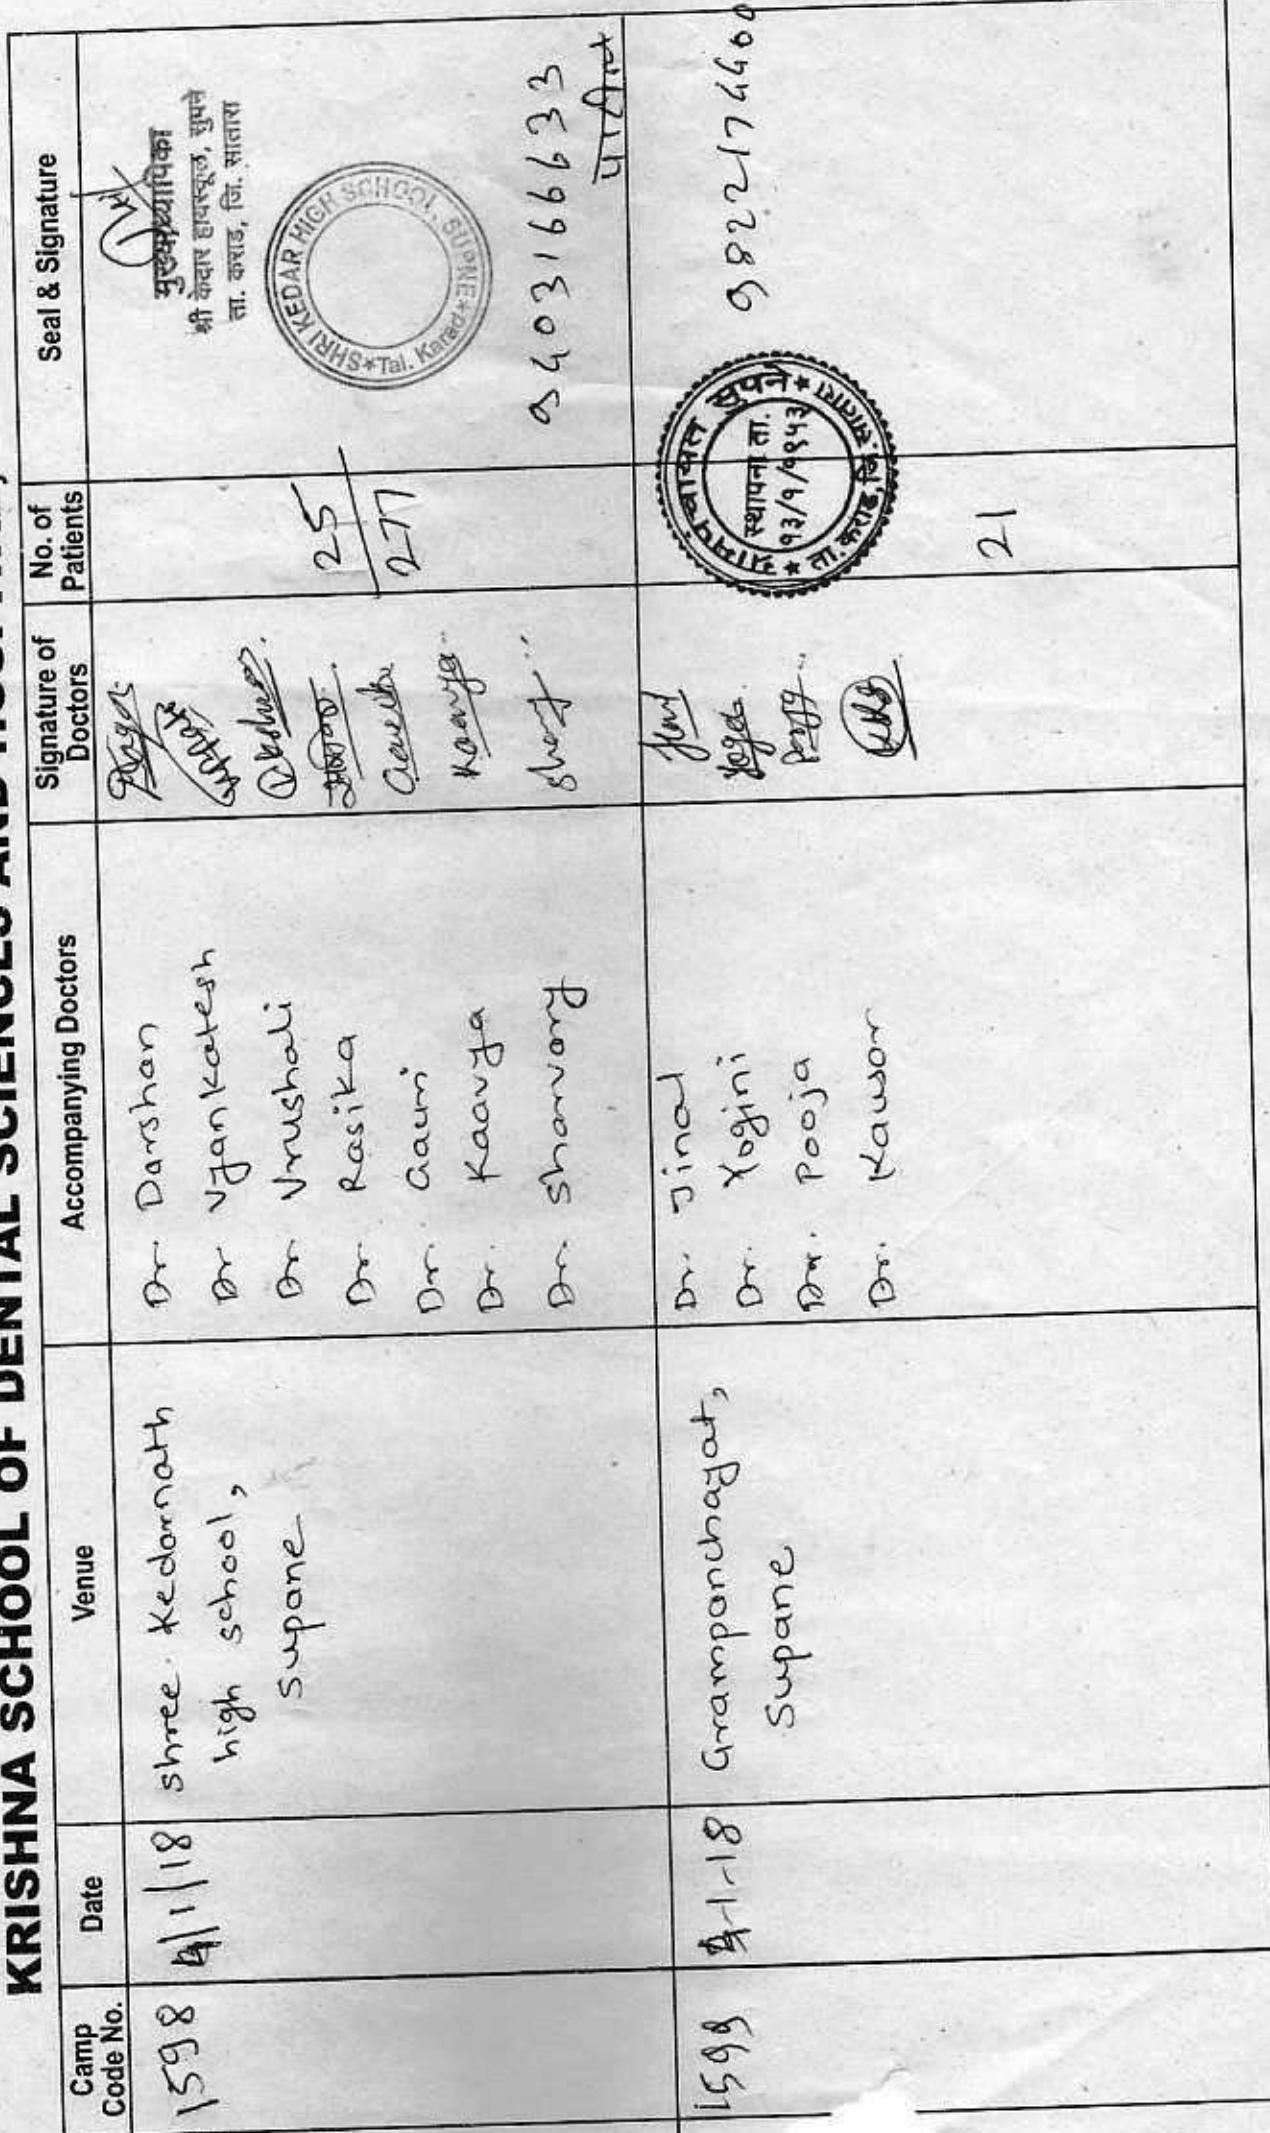 KRISHNA SCHOOL OF DENTAL SCIENCES AND
Camp Code No.
Date
Venue
Accompanying Doctors
Signature of Doctors
No. of Patients
Seal & Signature
1598
4/1/18
shree. Kedarnath
high school,
Supane
Dr. Darshan
Dr Vyankatesh
Dr Vrushali
Dr. Rasika
Dr. Gauri
Dr. Kaavya
Dr. Sharvary
Kaavya
25
277
मुख्याध्यापिका
श्री केदार हायस्कूल, सुपने
ता. कराड, जि. सातारा
SHRI KEDAR HIGH SCHOOL, SUPNE * Tal. Karad *
9403166633
पाटील
1599
4-1-18
Grampanchayat,
Supane
Dr. Jinal
Dr. Yogini
Dr. Pooja
Dr. Kawsar
21
ग्रामपंचायत सुपने * ता. कराड, जि. सातारा *
स्थापना ता.
१३/१/१९५३